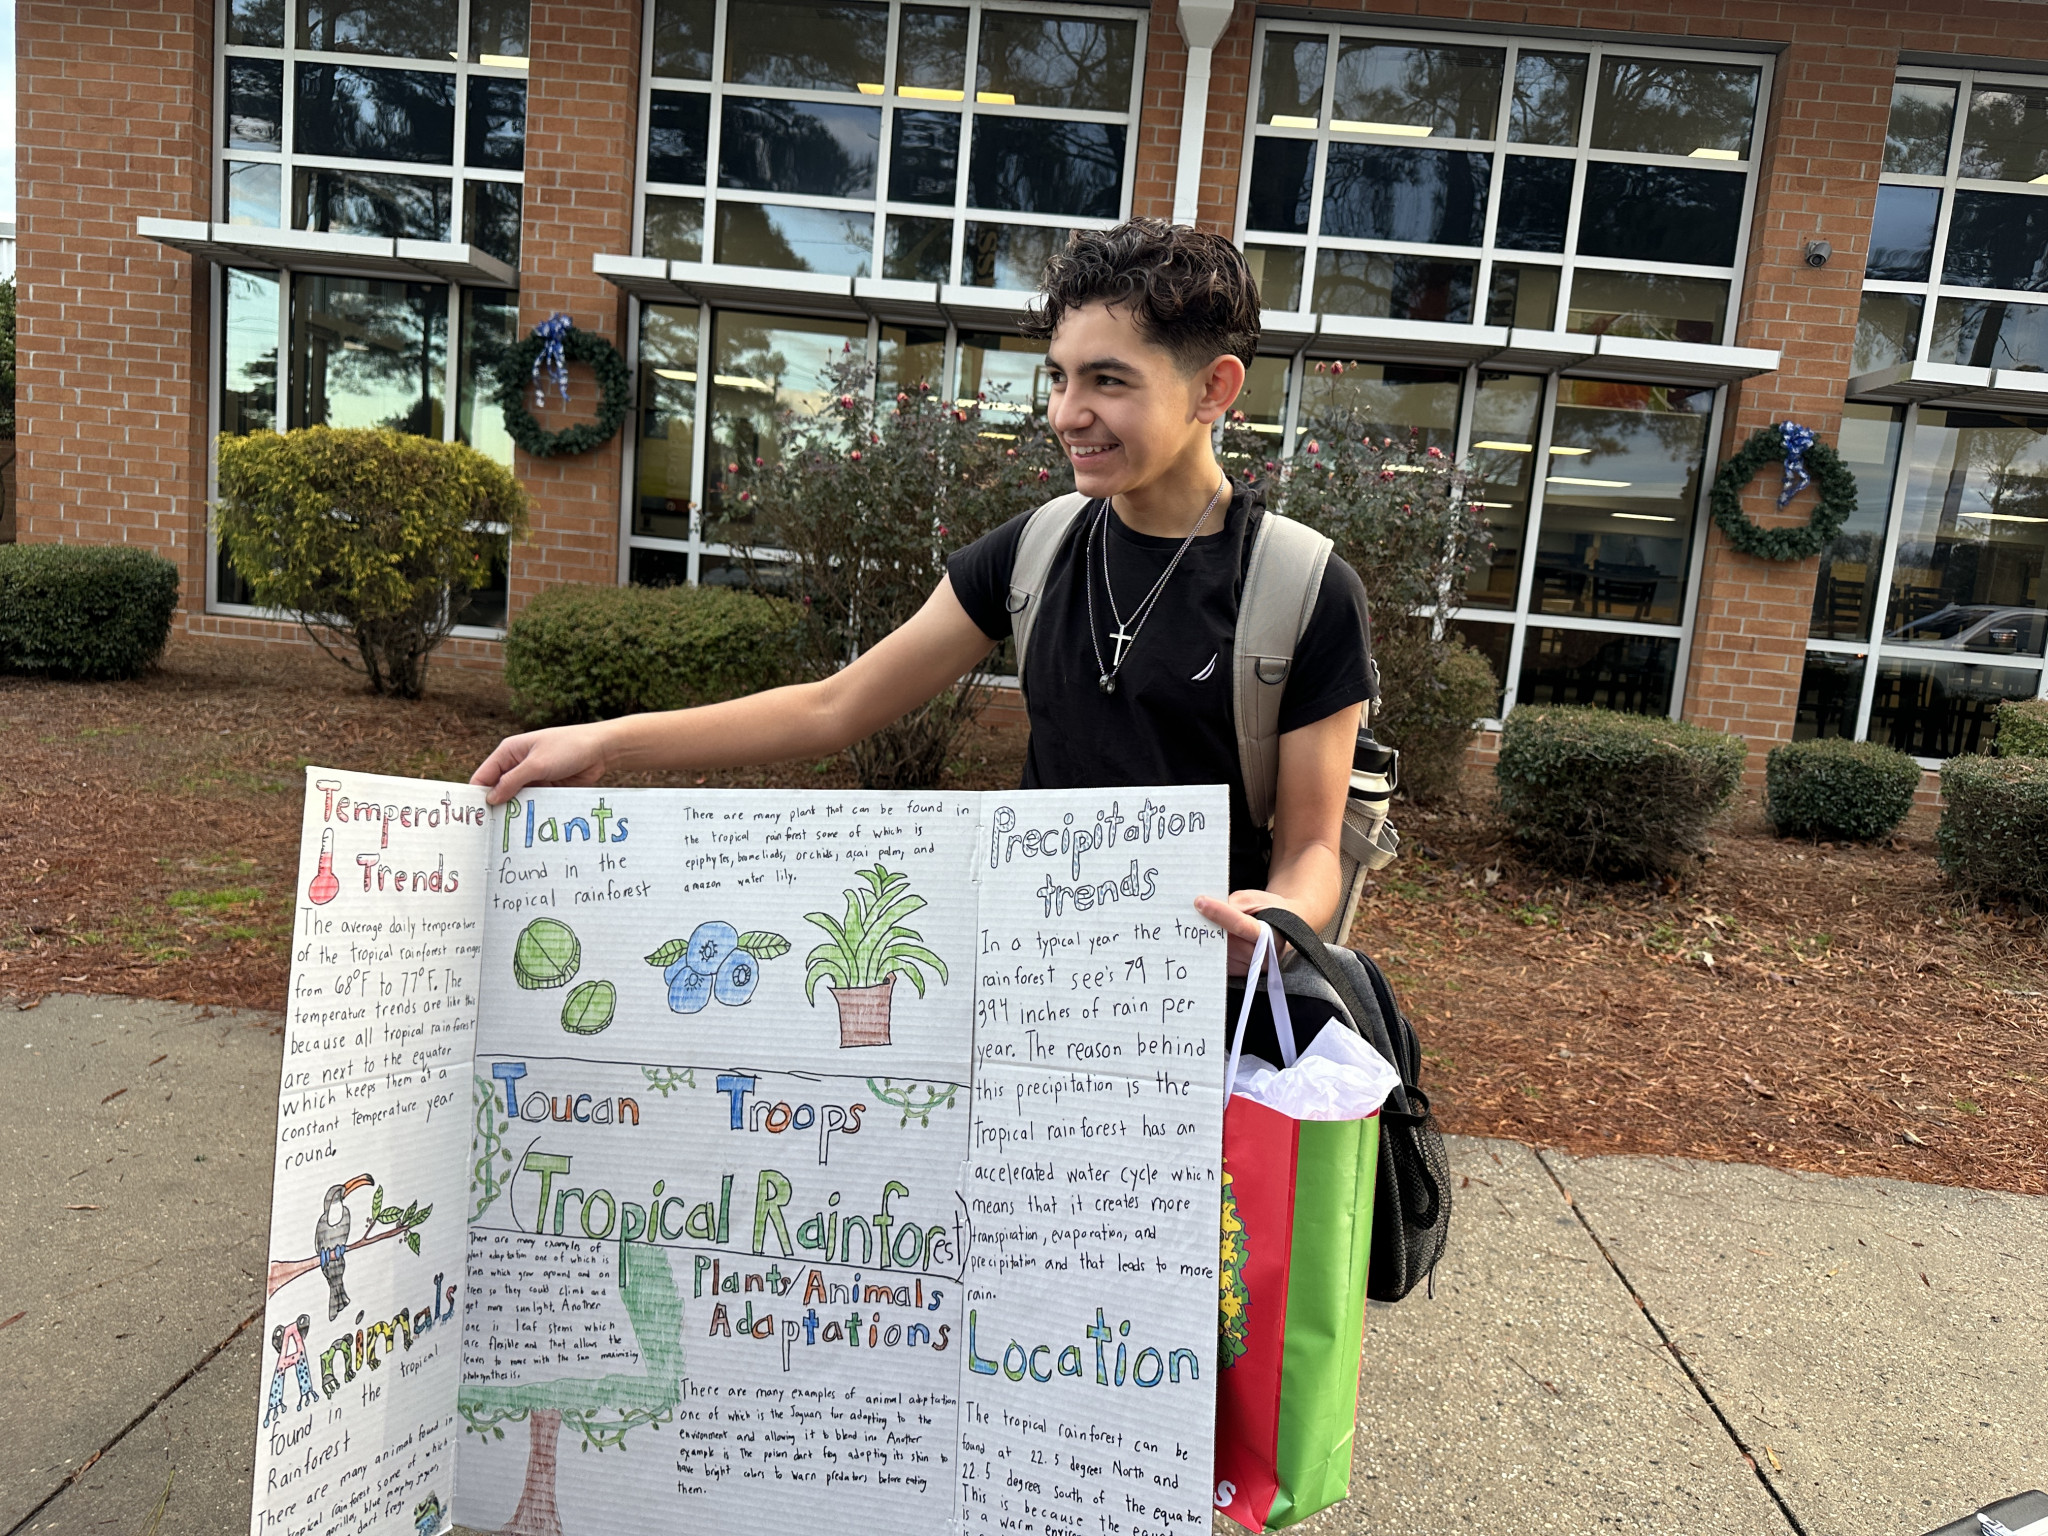 Temperature
Trends
The average daily temperature
of the tropical rainforest ranges
from 68°F to 77°F. The
temperature trends are like this
because all tropical rainforest
are next to the equator
which keeps them at a
constant temperature year
round.
Animals
found in the tropical
Rainforest
There are many animals found in
tropical rainforest some of which
gorilla, blue morpho, jaguar,
dart frog.
Plants
found in the
tropical rainforest
There are many plant that can be found in
the tropical rainforest some of which is
epiphytes, bromeliads, orchids, açai palm, and
amazon water lily.
Toucan Troops
(Tropical Rainforest)
There are many examples of
plant adaptation one of which is
Vines which grow around and on
trees so they could climb and
get more sunlight. Another
one is leaf stems which
are flexible and that allows the
leaves to move with the sun maximizing
photosynthesis.
Plants/Animals
Adaptations
There are many examples of animal adaptation
one of which is the Jaguars fur adapting to the
environment and allowing it to blend in. Another
example is The poison dart frog adapting its skin to
have bright colors to warn predators before eating
them.
Precipitation
trends
In a typical year the tropical
rainforest see's 79 to
394 inches of rain per
year. The reason behind
this precipitation is the
tropical rainforest has an
accelerated water cycle which
means that it creates more
transpiration, evaporation, and
precipitation and that leads to more
rain.
Location
The tropical rainforest can be
found at 22.5 degrees North and
22.5 degrees south of the equator.
This is because the
is a warm